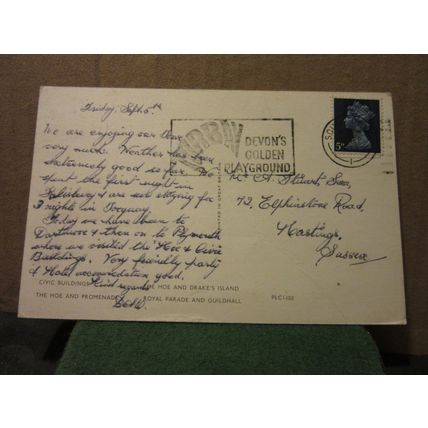 Friday, Sept. 5th
We are enjoying our Tour
very much. Weather has been
extremely good so far. We
spent the first night in
Salisbury & are now staying for
3 nights in Torquay.
Today we have been to
Dartmoor & then on to Plymouth
where we visited the Hoe & Civic
Buildings. Very friendly party
& Hotel accommodation good.
Kind regards
TORBAY
DEVON'S
GOLDEN
PLAYGROUND
5D
Mr A. Stuart Son,
72, Elphinstone Road,
Hastings,
Sussex
PRINTED IN GREAT BRITAIN
CIVIC BUILDINGS THE HOE AND DRAKE'S ISLAND
THE HOE AND PROMENADE ROYAL PARADE AND GUILDHALL PLC1402